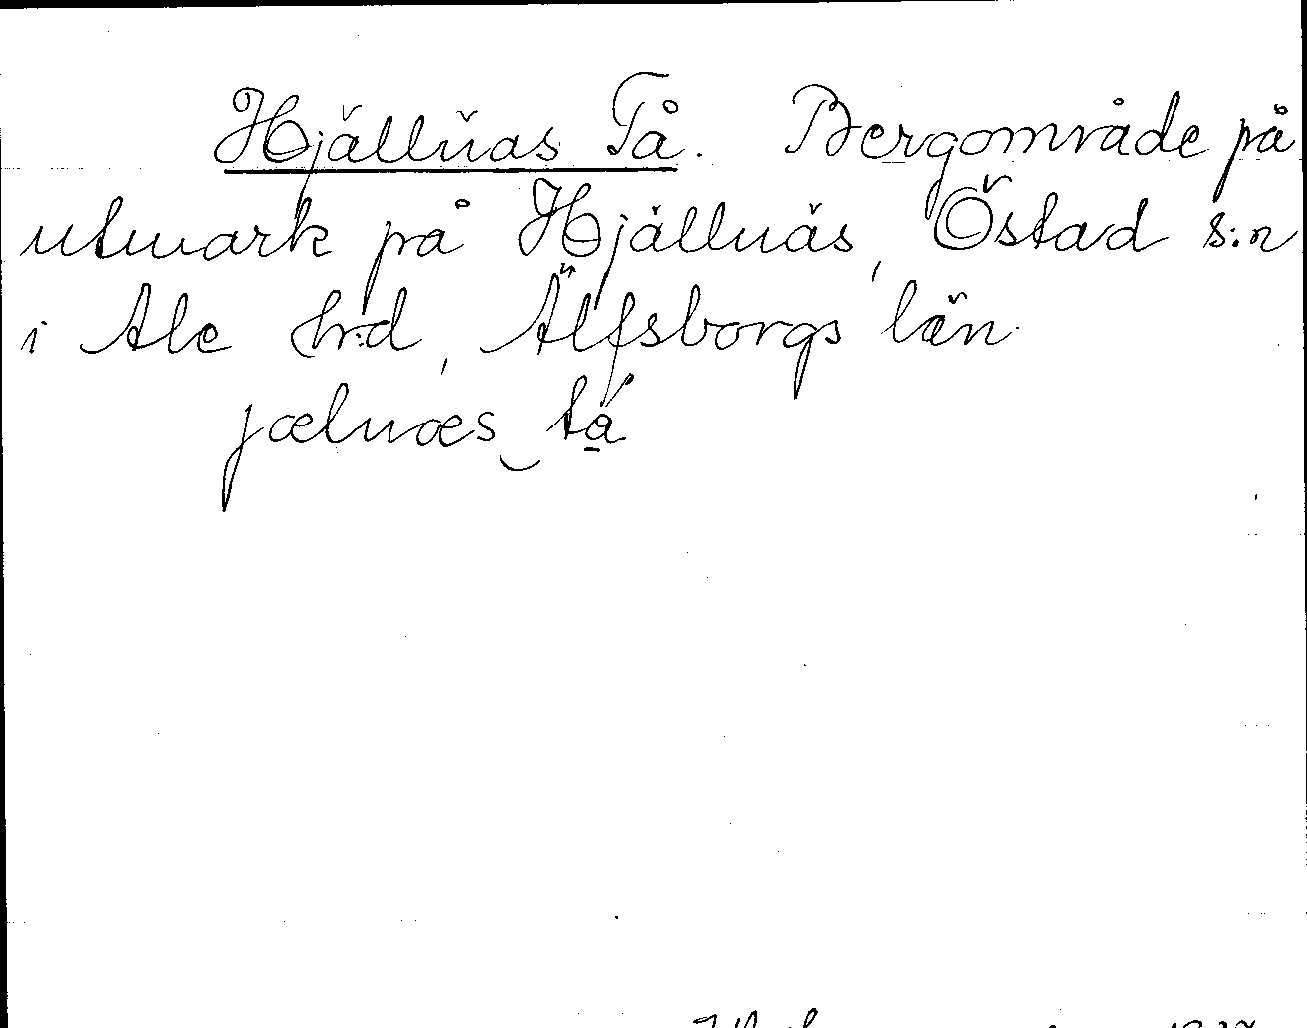 Hjällnäs Tå. Bergområde på
utmark på Hjällnäs, Östad s:n
i Ale hrd, Älfsborgs län.
jælnæs tå